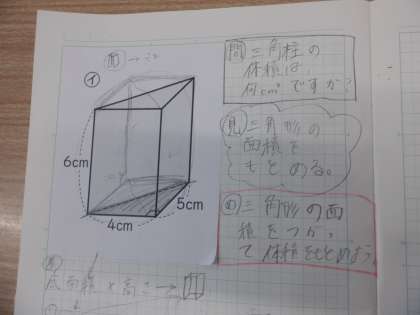 イ
6cm
5cm
4cm
問 三角柱の
体積は、
何cm³ですか?
見 三角形の
面積を
もとめる。
め 三角形の面
積をつかっ
て体積をもとめよう
底面積×高さ→